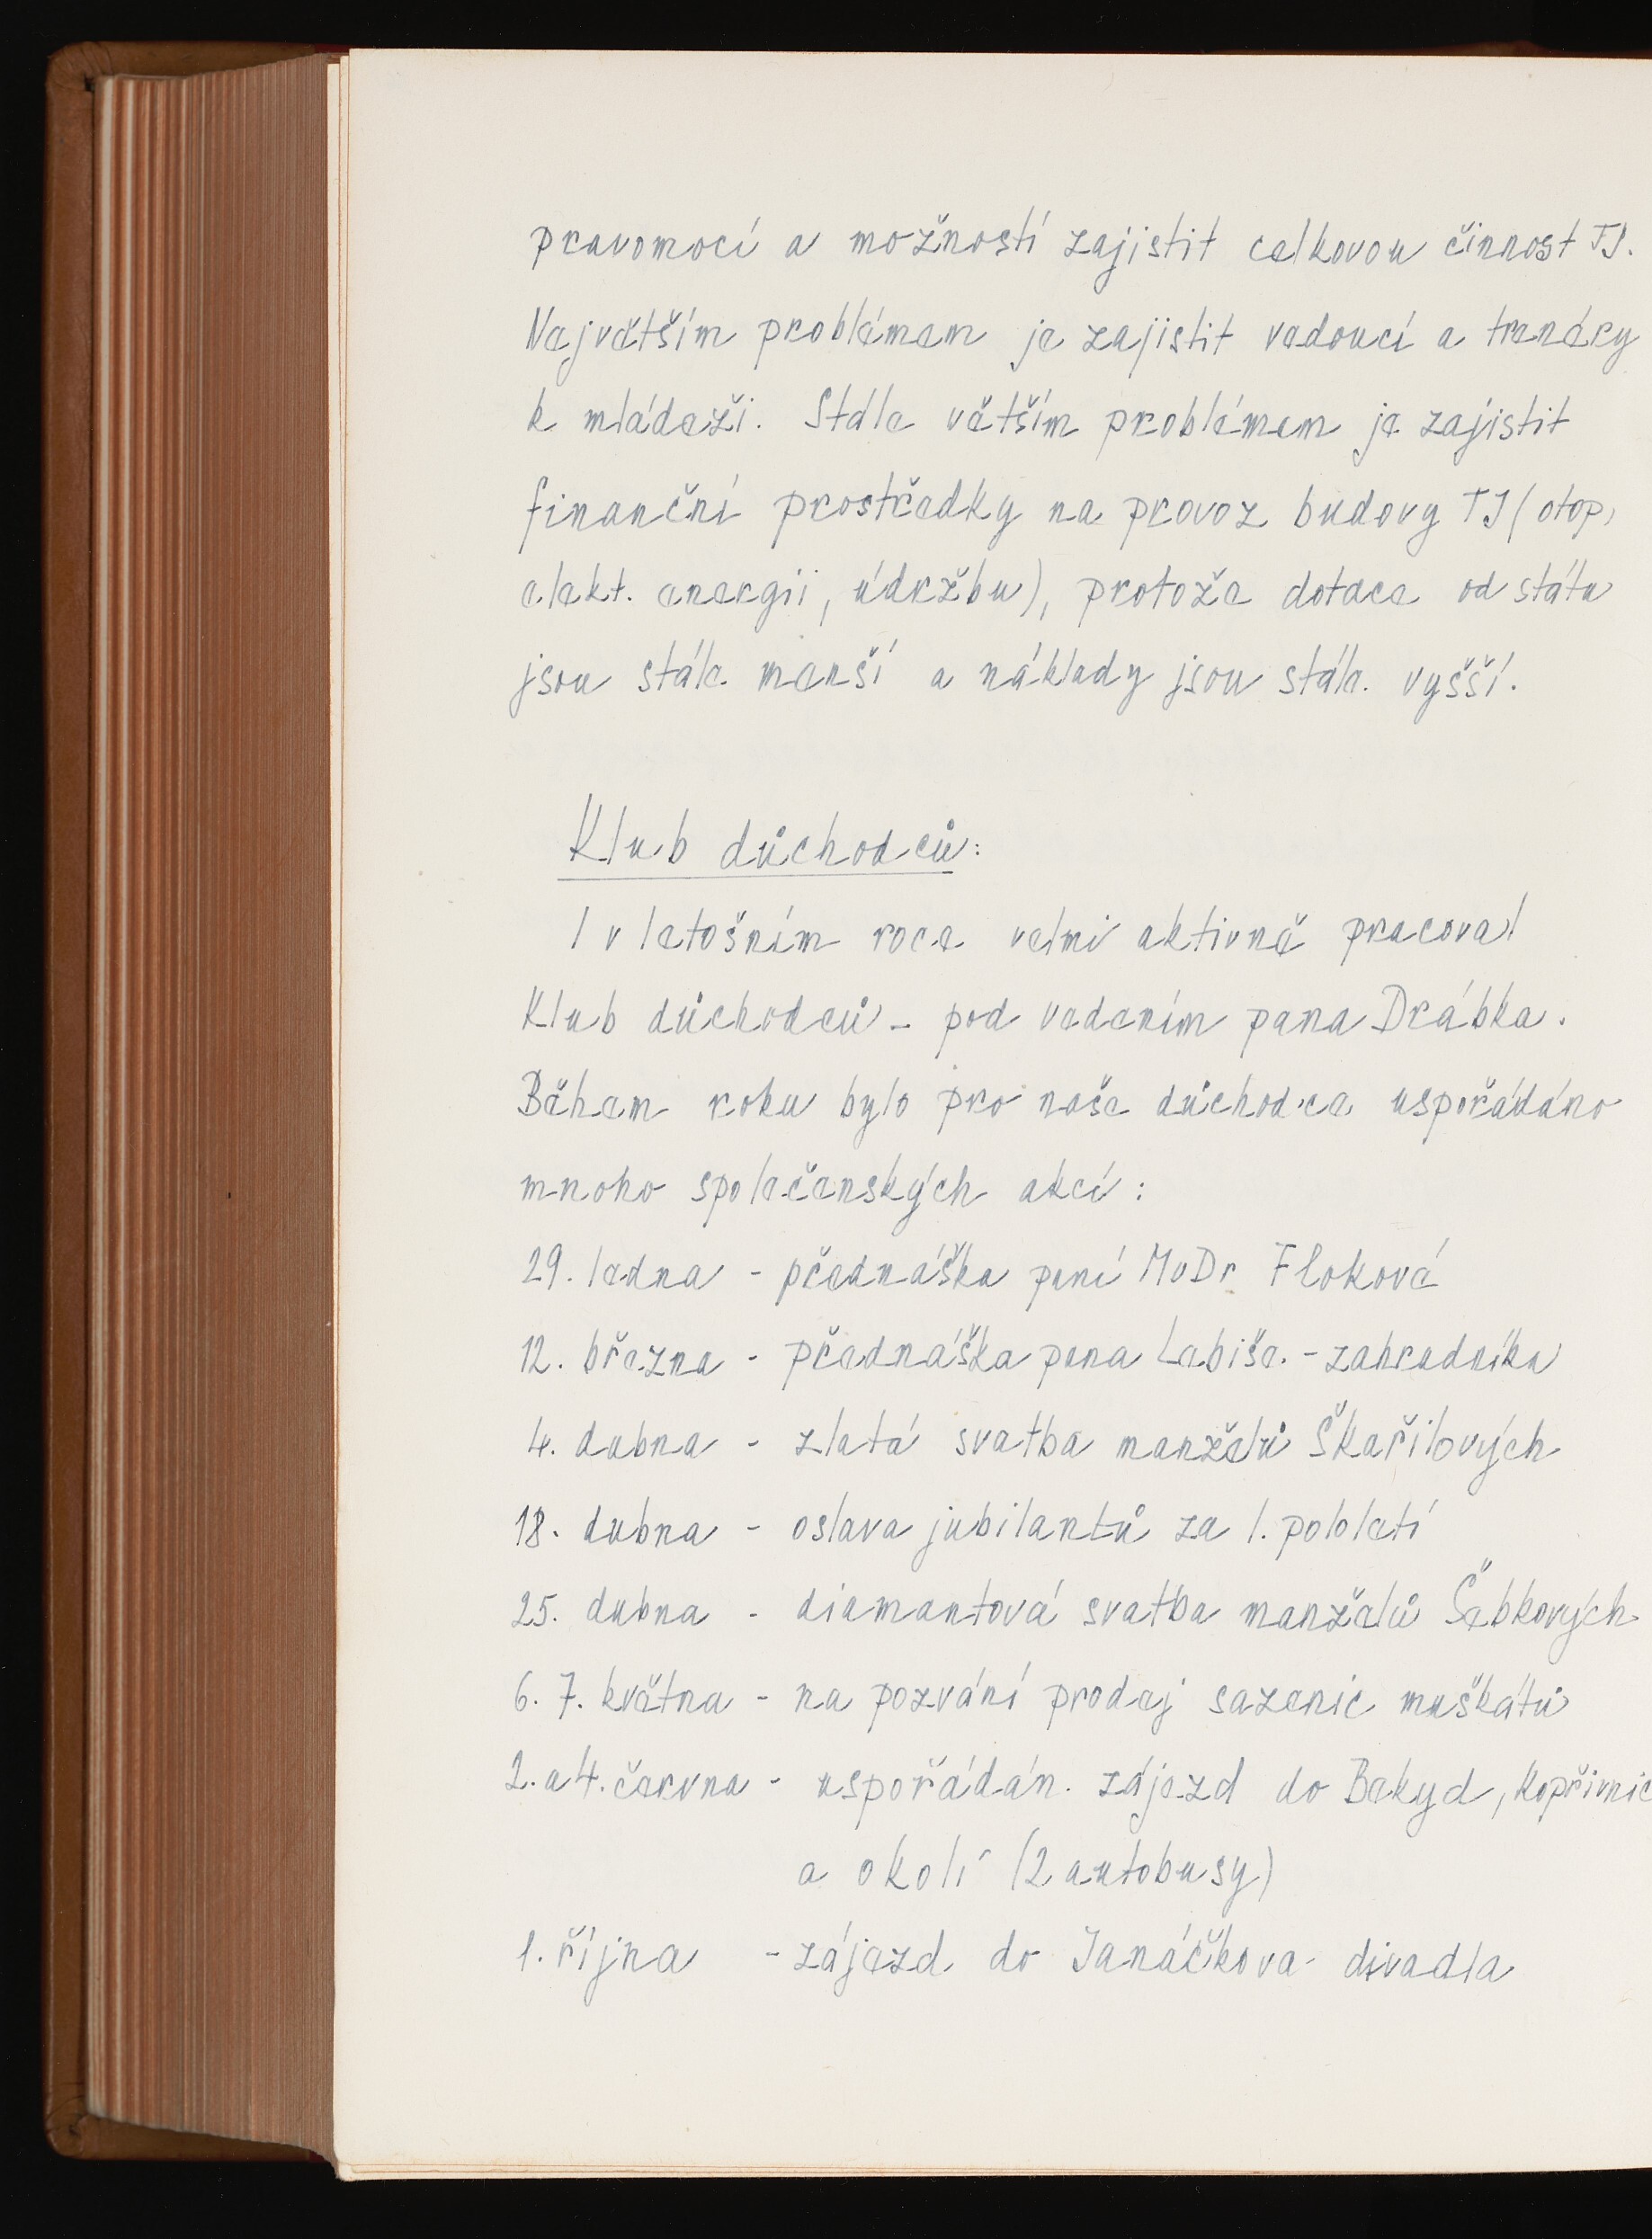 pravomocí a možností zajistit celkovou činnost TJ.
Největším problémem je zajistit vedoucí a trenéry
k mládeži. Stále větším problémem je zajistit
finanční prostředky na provoz budovy TJ (otop,
elekt. energii, údržbu), protože dotace od státu
jsou stále menší a náklady jsou stále vyšší.
Klub důchodců:
I v letošním roce velmi aktivně pracoval
Klub důchodců - pod vedením pana Drábka.
Během roku bylo pro naše důchodce uspořádáno
mnoho společenských akcí:
29. ledna - přednáška paní MuDr Floková
12. března - přednáška pana Lebiše - zahradníka
4. dubna - zlatá svatba manželů Škařilových
18. dubna - oslava jubilantů za 1. pololetí
25. dubna - diamantová svatba manželů Šebkových
6. 7. května - na pozvání prodej sazenic muškátů
2. a 4. června - uspořádán zájezd do Bekyd, Kopřivnic
a okolí (2 autobusy)
1. října - zájezd do Janáčkova divadla